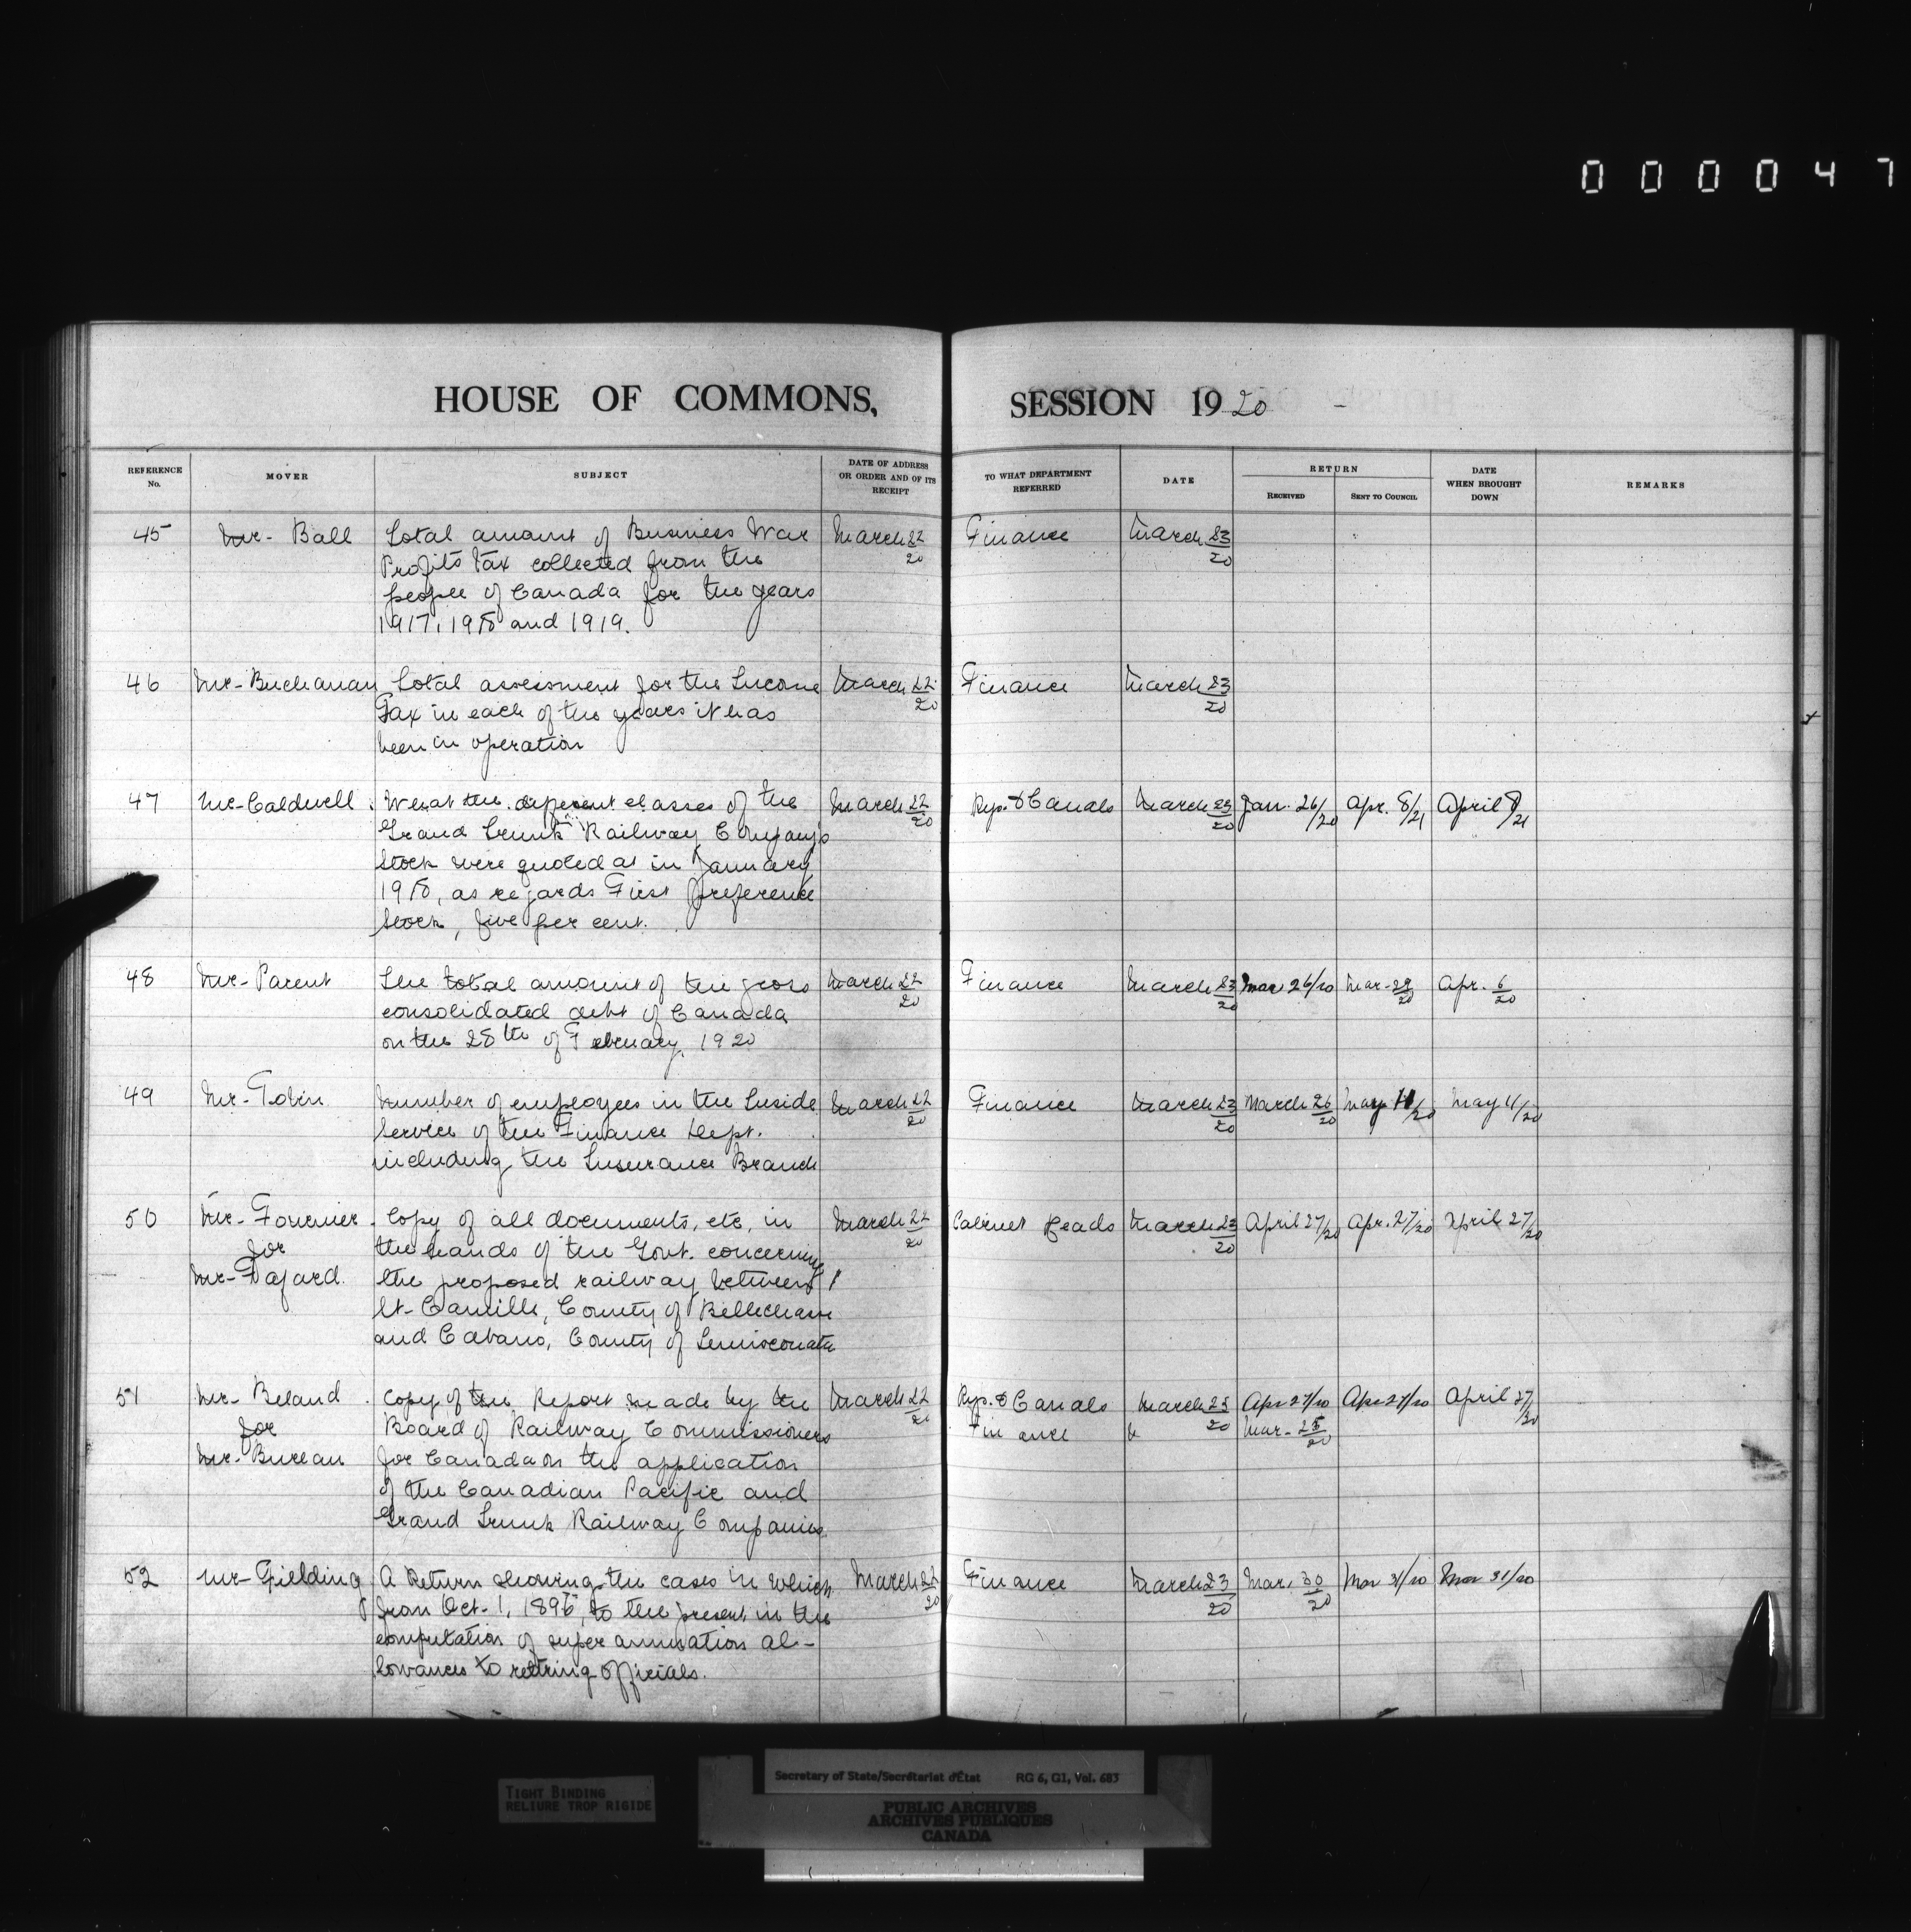 0 0 0 0 4 7
HOUSE OF COMMONS, SESSION 1920 -
REFERENCE No. MOVER SUBJECT DATE OF ADDRESS OR ORDER AND OF ITS RECEIPT TO WHAT DEPARTMENT REFERRED DATE RETURN RECEIVED SENT TO COUNCIL DATE WHEN BROUGHT DOWN REMARKS
45 Mr- Ball Total amount of Business War March 22/20 Finance March 23/20
Profits Tax collected from the
people of Canada for the years
1917, 1918 and 1919.
46 Mr- Buchanan Total assessment for the Income March 22/20 Finance March 23/20
Tax in each of the years it has
been in operation
47 Mr- Caldwell What the different classes of the March 22/20 Rys. & Canals March 23/20 Jan. 26/20 Apr. 8/21 April 8/21
Grand Trunk Railway Company's
Stock were quoted at in January
1918, as regards First preference
Stock, five per cent.
48 Mr- Parent The total amount of the gross March 22/20 Finance March 23/20 Mar 26/20 Mar- 29/20 Apr. 6/20
consolidated debt of Canada
on the 28th of February, 1920
49 Mr- Tobin Number of employees in the Inside March 22/20 Finance March 23/20 March 26/20 May 11/20 May 11/20
Service of the Finance Dept.
including the Insurance Branch
50 Mr- Fournier Copy of all documents, etc, in March 22/20 Cabinet Heads March 23/20 April 27/20 Apr. 27/20 April 27/20
for the hands of the Govt. concerning
Mr- Fafard. the proposed railway between
St- Camille, County of Bellechasse
and Cabano, County of Temiscouata
51 Mr- Beland Copy of the Report made by the March 22/20 Rys. & Canals March 23/20 Apr 27/20 Apr 27/20 April 27/20
for Board of Railway Commissioners Finance Mar- 25/20
Mr- Bureau for Canada on the application
of the Canadian Pacific and
Grand Trunk Railway Companies.
52 Mr- Fielding A Return showing the cases in which March 22/20 Finance March 23/20 Mar. 30/20 Mar 31/20 Mar 31/20
from Oct- 1, 1896, to the present in the
computation of superannuation al-
lowances to retiring officials.
Secretary of State/Secrétariat d'État RG 6, G1, Vol. 683
TIGHT BINDING
RELIURE TROP RIGIDE
PUBLIC ARCHIVES
ARCHIVES PUBLIQUES
CANADA